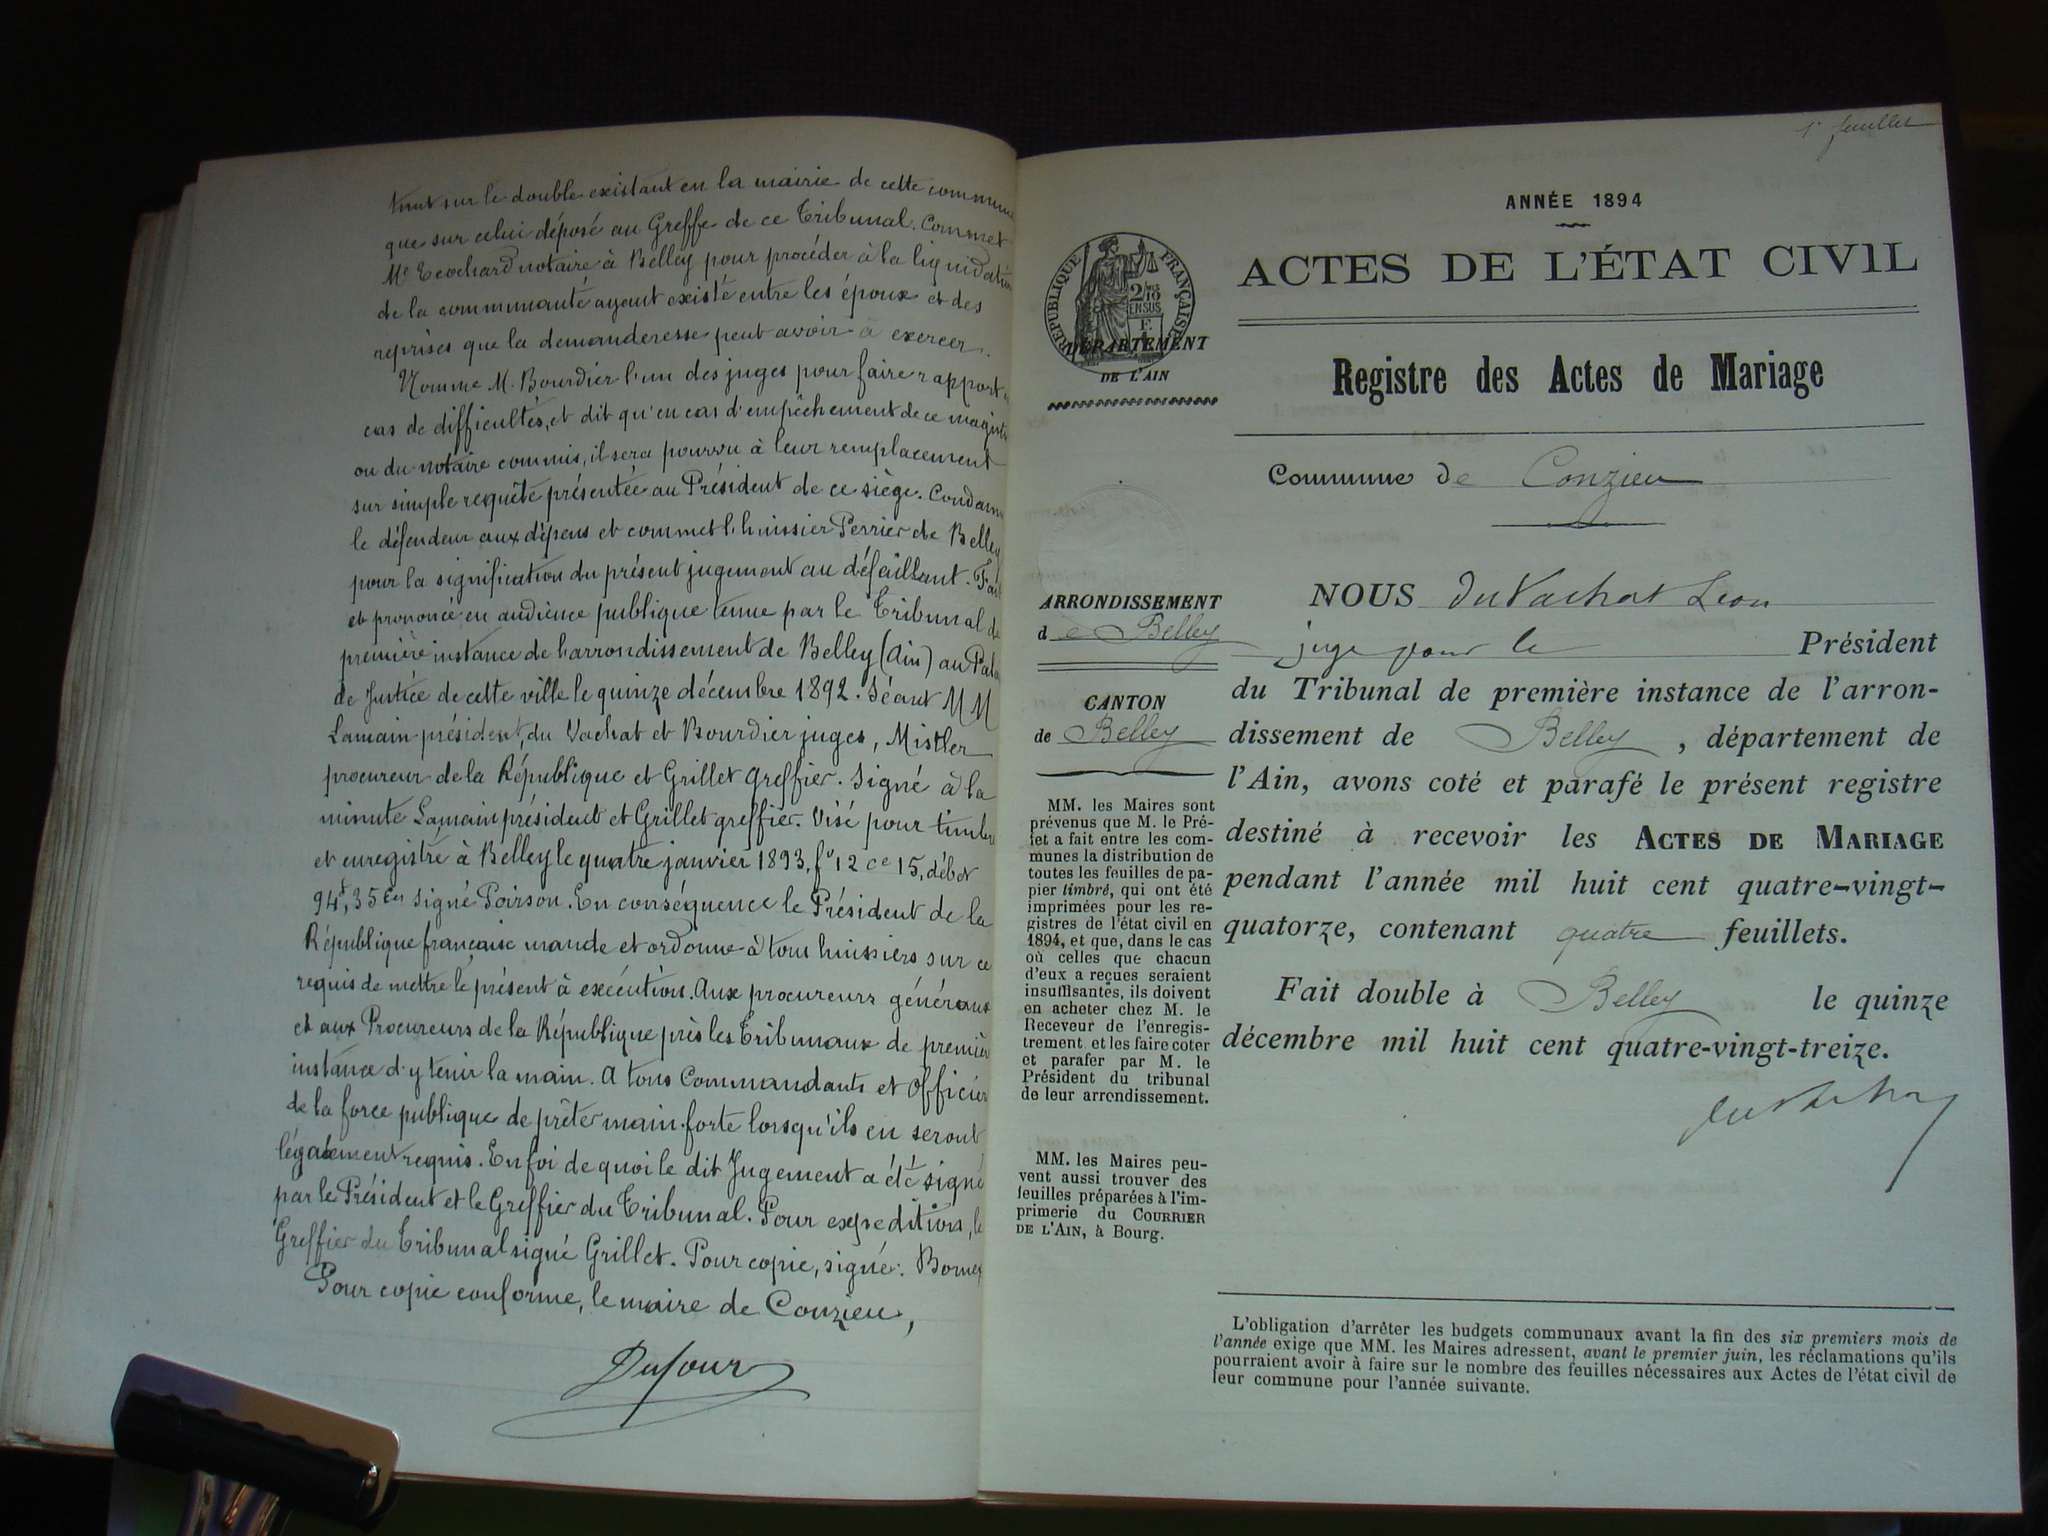 tant sur le double existant en la mairie de cette commune
que sur celui déposé au Greffe de ce Tribunal. Commet
Me notaire à Belley pour procéder à la liquidation
de la communauté ayant existé entre les époux et des
reprises que la demanderesse peut avoir à exercer.
Nomme M. Bourdier l'un des juges pour faire rapport en
cas de difficultés, et dit qu'en cas d'empêchement de ce magist
ou du notaire commis, il sera pourvu à leur remplacement
sur simple requête présentée au Président de ce siège. Condamn
le défendeur aux dépens et commet l'huissier Perrier de Belley
pour la signification du présent jugement au défaillant. Fait
et prononcé en audience publique tenue par le Tribunal de
première instance de l'arrondissement de Belley (Ain) au Pala
de Justice de cette ville le quinze décembre 1892. Séant MM
Lamain président, du Vachat et Bourdier juges, Mistler
procureur de la République et Grillet Greffier. Signé à la
minute Lamain président et Grillet greffier. Visé pour timbre
et enregistré à Belley le quatre janvier 1893, fo 12 ce 15, débet
94f,35 ces signé Poirson. En conséquence le Président de la
République française mande et ordonne à tous huissiers sur ce
requis de mettre le présent à exécution. Aux procureurs généraux
et aux Procureurs de la République près les Tribunaux de première
instance d'y tenir la main. A tous Commandants et Officiers
de la force publique de prêter main-forte lorsqu'ils en seront
légalement requis. En foi de quoi le dit Jugement a été signé
par le Président et le Greffier du Tribunal. Pour expédition, le
Greffier du Tribunal signé Grillet. Pour copie, signé:
Pour copie conforme, le maire de Conzieu,
Dufour
1er feuillet
ANNÉE 1894
ACTES DE L'ÉTAT CIVIL
RÉPUBLIQUE FRANÇAISE
2/10 EN SUS
DÉPARTEMENT
DE L'AIN
Registre des Actes de Mariage
Commune de Conzieu
ARRONDISSEMENT
de Belley
CANTON
de Belley
MM. les Maires sont
prévenus que M. le Pré-
fet a fait entre les com-
munes la distribution de
toutes les feuilles de pa-
pier timbré, qui ont été
imprimées pour les re-
gistres de l'état civil en
1894, et que, dans le cas
où celles que chacun
d'eux a reçues seraient
insuffisantes, ils doivent
en acheter chez M. le
Receveur de l'enregis-
trement et les faire coter
et parafer par M. le
Président du tribunal
de leur arrondissement.
MM. les Maires peu-
vent aussi trouver des
feuilles préparées à l'im-
primerie du COURRIER
DE L'AIN, à Bourg.
NOUS du Vachat Léon
juge pour le Président
du Tribunal de première instance de l'arron-
dissement de Belley, département de
l'Ain, avons coté et parafé le présent registre
destiné à recevoir les ACTES DE MARIAGE
pendant l'année mil huit cent quatre-vingt-
quatorze, contenant quatre feuillets.
Fait double à Belley le quinze
décembre mil huit cent quatre-vingt-treize.
L'obligation d'arrêter les budgets communaux avant la fin des six premiers mois de
l'année exige que MM. les Maires adressent, avant le premier juin, les réclamations qu'ils
pourraient avoir à faire sur le nombre des feuilles nécessaires aux Actes de l'état civil de
leur commune pour l'année suivante.